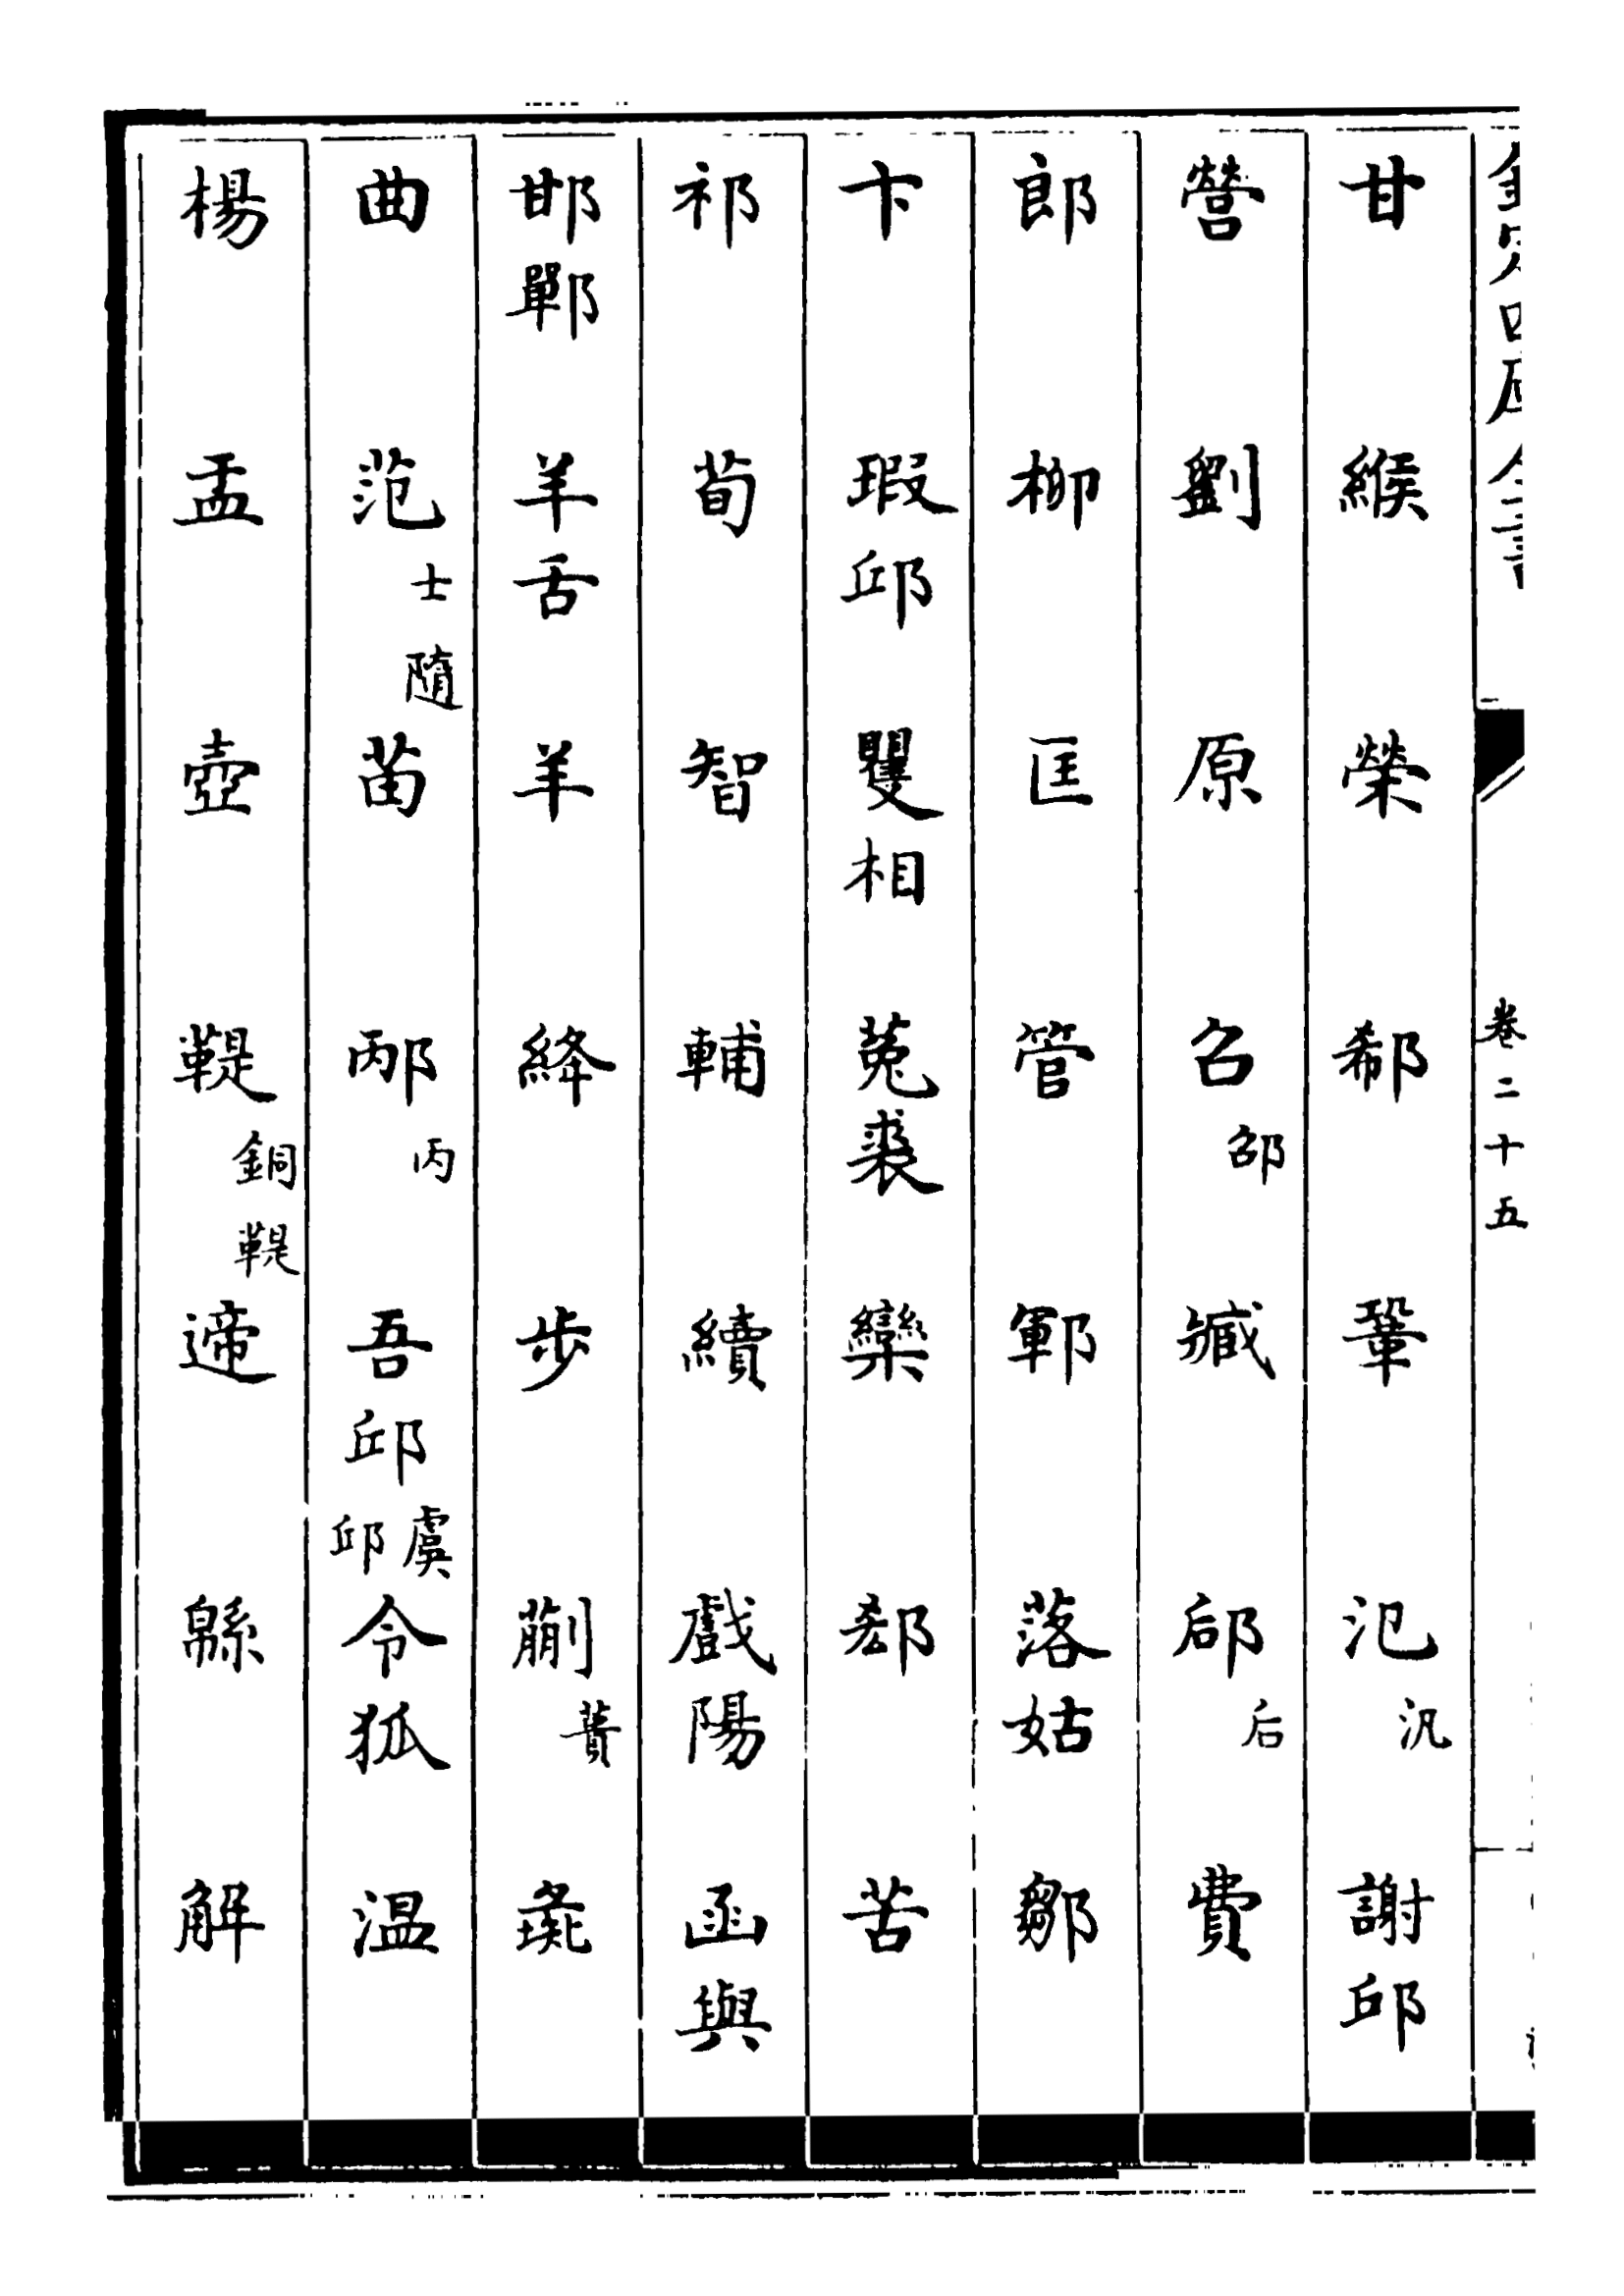 欽定四庫全書 卷二十五
甘 緱 榮 郗 鞏 氾 汎 謝邱
營 劉 原 召 邵 臧 郈 后 費
郎 柳 匡 管 鄆 落姑 鄒
卞 瑕邱 矍相 菟裘 欒 郄 苦
祁 荀 智 輔 續 戲陽 函與
邯鄲 羊舌 羊 絳 步 蒯 蕢 彘
曲 范 士 隨 苗 邴 丙 吾邱 虞邱 令狐 温
楊 盂 壺 鞮 銅鞮 遆 緜 解